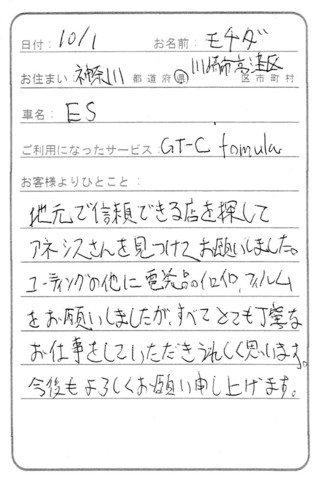 日付: 10/1 お名前: モチダ
お住まい 神奈川 都道府県 川崎市高津区 区市町村
車名: ES
ご利用になったサービス: GT-C fomula
お客様よりひとこと:
地元で信頼できる店を探して
アネシスさんを見つけてお願いしました。
コーティングの他に電装品のイロイロ、フィルム
をお願いしましたが、すべてとても丁寧な
お仕事をしていただきうれしく思います。
今後もよろしくお願い申し上げます。